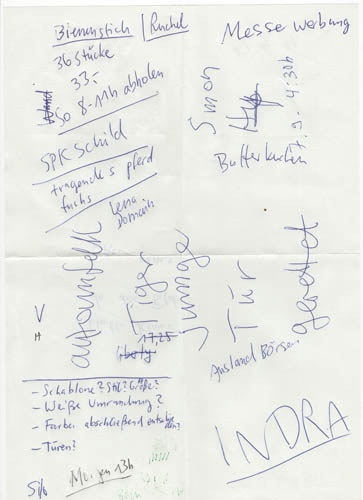 Bienenstich / Kuchel
36 Stücke
33.-
So 8-11h abholen
SPK Schild
tragendes pferd
fuchs
Lena
Domain
Messe werbung
Simon
7.9. 4:30h
Butterkuchen
Tiger
junge
Tür
gerettet
17,25
liberty
Ausland Börsen
V
H
- Schablone? Stil? Größe?
- Weiße Umrandung?
- Farbe: abschließend
- Türen?
Morgen 13h
INDRA